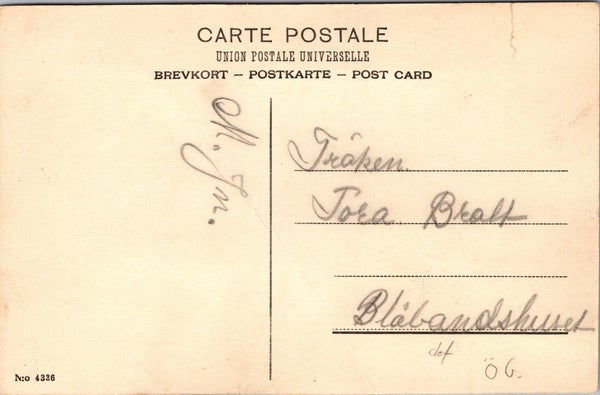 CARTE POSTALE
UNION POSTALE UNIVERSELLE
BREVKORT — POSTKARTE — POST CARD
M. Jn.
Fröken
Tora Bratt
Blåbandshuset
Ö b.
N:o 4326